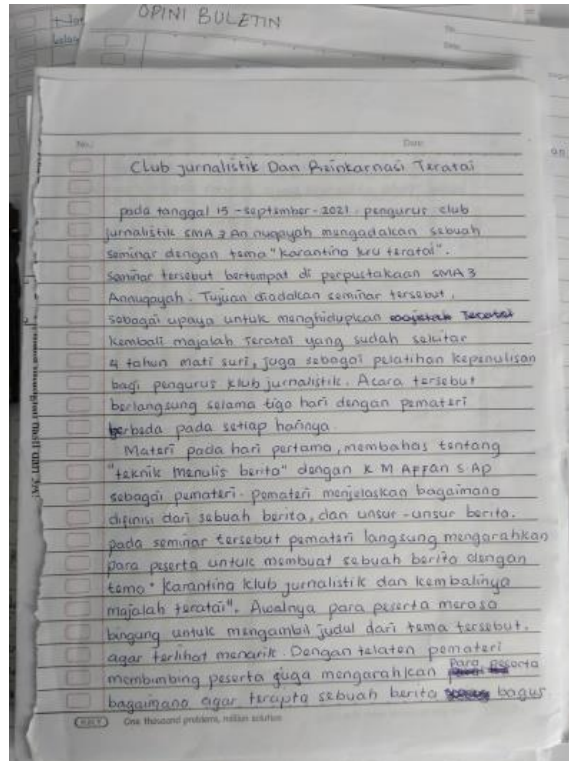 OPINI BULETIN
No.:
Date:
Club jurnalistik Dan Reinkarnasi Teratai
pada tanggal 15 - september - 2021. pengurus club
jurnalistik SMA 3 An nuqayah mengadakan sebuah
seminar dengan tema "karantina kru teratai".
Seminar tersebut bertempat di perpustakaan SMA 3
Annuqayah. Tujuan diadakan seminar tersebut,
sebagai upaya untuk menghidupkan
kembali majalah Teratai yang sudah sekitar
4 tahun mati suri, juga sebagai pelatihan kepenulisan
bagi pengurus klub jurnalistik. Acara tersebut
berlangsung selama tiga hari dengan pemateri
berbeda pada setiap harinya.
Materi pada hari pertama, membahas tentang
"teknik menulis berita" dengan K M Affan S.Ap
sebagai pemateri. pemateri menjelaskan bagaimana
difinisi dari sebuah berita, dan unsur-unsur berita.
pada seminar tersebut pemateri langsung mengarahkan
para peserta untuk membuat sebuah berita dengan
tema "Karantina klub jurnalistik dan kembalinya
majalah teratai". Awalnya para peserta merasa
bingung untuk mengambil judul dari tema tersebut.
agar terlihat menarik. Dengan telaten pemateri
membimbing peserta juga mengarahkan para peserta
bagaimana agar tercipta sebuah berita bagus
One thousand problems, million solution